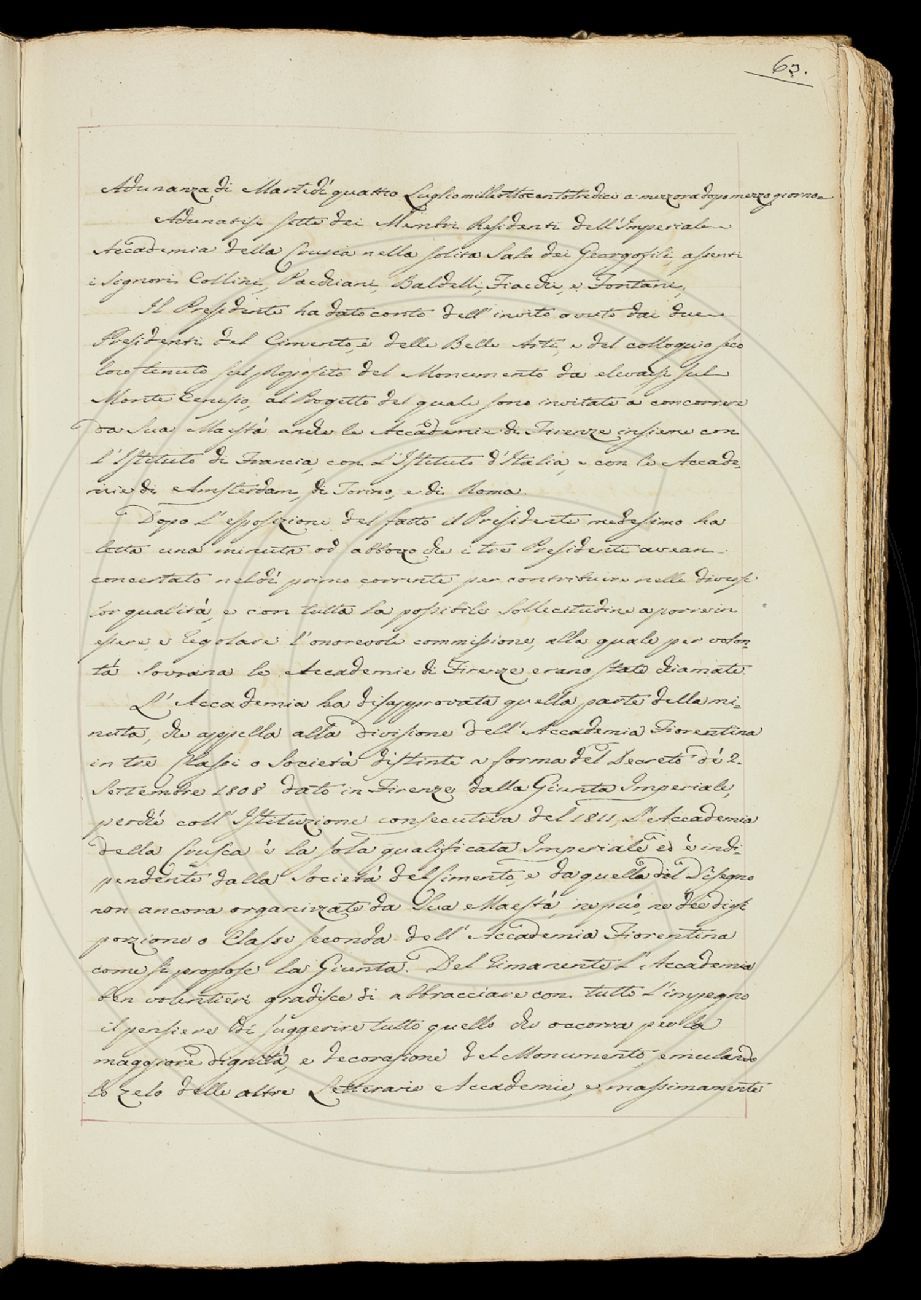 63.
Adunanza di Martedì quattro Luglio mille ottocentotredici a mezzora dopo mezzo giorno
Adunatisi sette dei Membri Residenti dell'Imperiale
Accademia della Crusca nella solita Sala dei Georgofili assenti
i Signori Collini, Pacchiani, Baldelli, Fiacchi, e Fontani,
Il Presidente ha dato conto dell'invito avuto dai due
Presidenti del Cimento, e delle Belle Arti, e del colloquio seco
loro tenuto sul proposito del Monumento da elevarsi sul
Monte Cenisio, al Progetto del quale sono invitate a concorrere
da Sua Maestà anche le Accademie di Firenze insieme con
l'Istituto di Francia, con l'Istituto d'Italia, e con le Accade
mie di Amsterdam, di Torino, e di Roma.
Dopo l'esposizione del fatto il Presidente medesimo ha
letta una minuta od abbozzo che i tre Presidenti avean
concertato nel dì primo corrente per contribuire nelle diverse
lor qualità, e con tutta la possibile sollecitudine a porre in
essere, e regolare l'onorevole commissione, alla quale per volon-
tà Sovrana le Accademie di Firenze erano state chiamate.
L'Accademia ha disapprovata quella parte della mi-
nuta, che appella alla divisione dell'Accademia Fiorentina
in tre Classi o Società distinte a forma del Decreto de' 2.
Settembre 1808 dato in Firenze dalla Giunta Imperiale,
perchè coll'Istituzione consecutiva del 1811, l'Accademia
della Crusca è la sola qualificata Imperiale ed è indi-
pendente dalla Società del Cimento, e da quella del Disegno
non ancora organizzate da Sua Maestà, ne più, ne dee dirsi
porzione o Classe seconda dell'Accademia Fiorentina
come si propose la Giunta. Del rimanente l'Accademia
ben volentieri gradisce di abbracciare con tutto l'impegno
il pensiere di suggerire tutto quello che occorra per la
maggiore dignità, e decorazione del Monumento, emulando
lo zelo delle altre Letterarie Accademie, e massimamente